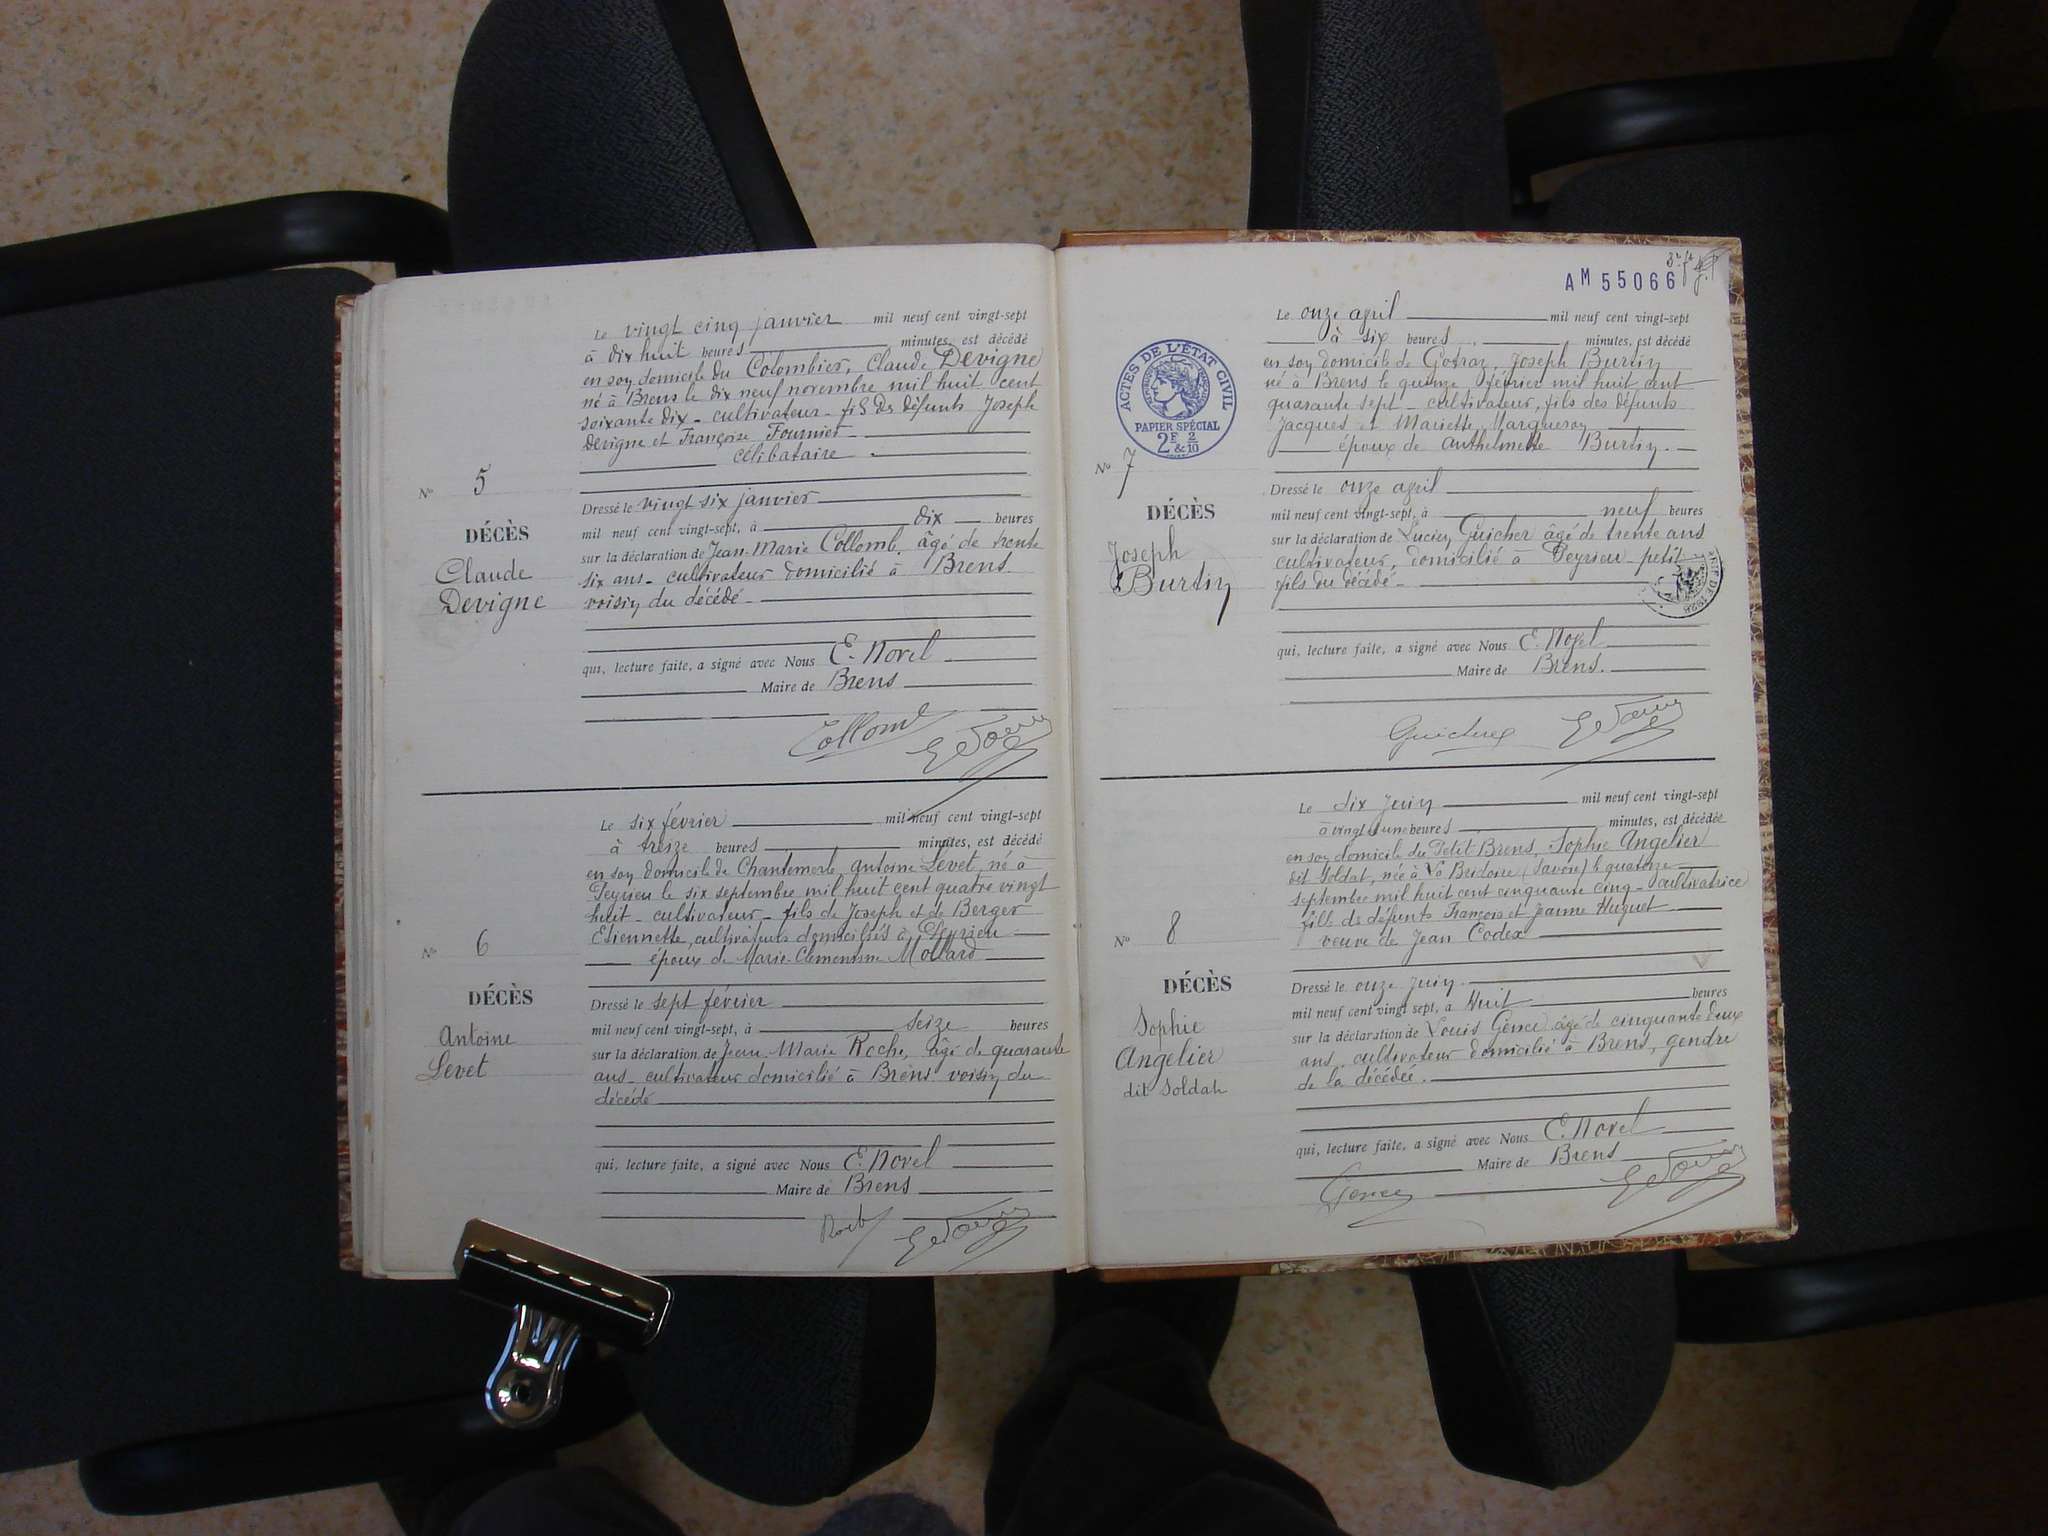 Le vingt cinq janvier mil neuf cent vingt-sept
à dix huit heures minutes, est décédé
en son domicile du Colombier, Claude Devigne
né à Brens le dix neuf novembre mil huit cent
soixante dix - cultivateur - fils des défunts Joseph
Devigne et Françoise Fournier
célibataire
N° 5
DÉCÈS
Claude
Devigne
Dressé le vingt six janvier
mil neuf cent vingt-sept, à dix heures
sur la déclaration de Jean-Marie Collomb, âgé de trente
six ans - cultivateur domicilié à Brens
voisin du décédé
qui, lecture faite, a signé avec Nous E. Novel
Maire de Brens
Collomb
Le six février mil neuf cent vingt-sept
à treize heures minutes, est décédé
en son domicile de Chantemerle Antoine Levet, né à
Peyrieu le six septembre mil huit cent quatre vingt
huit - cultivateur - fils de Joseph et de Berger
Etiennette, cultivateurs domiciliés à Peyrieu
époux de Marie-Clémentine Mollard
N° 6
DÉCÈS
Antoine
Levet
Dressé le sept février
mil neuf cent vingt-sept, à seize heures
sur la déclaration de Jean-Marie Roche, âgé de quarante
ans - cultivateur domicilié à Brens voisin du
décédé
qui, lecture faite, a signé avec Nous E. Novel
Maire de Brens
AM 55066
ACTES DE L'ÉTAT CIVIL
RÉPUBLIQUE FRANÇAISE
PAPIER SPÉCIAL
2F & 2/10
Le onze april mil neuf cent vingt-sept
à six heures minutes, est décédé
en son domicile de Joseph Burtin
né à Brens le quinze février mil huit cent
quarante sept - cultivateur, fils des défunts
Jacques et Mariette Margueron
époux de Anthelmette Burtin
N° 7
DÉCÈS
Joseph
Burtin
Dressé le onze april
mil neuf cent vingt-sept, à neuf heures
sur la déclaration de Lucien Guicher âgé de trente ans
cultivateur, domicilié à Peyrieu petit
fils du décédé
qui, lecture faite, a signé avec Nous E. Novel
Maire de Brens.
Guicher
Le six juin mil neuf cent vingt-sept
à vingt une heures minutes, est décédée
en son domicile du Petit Brens, Sophie Angelier
dit Soldat, née à La Bridoire (Savoie) le quatorze
septembre mil huit cent cinquante cinq - cultivatrice
fille de défunts François et Jeanne Huguet
veuve de Jean Codex
N° 8
DÉCÈS
Sophie
Angelier
dit Soldat
Dressé le onze juin
mil neuf cent vingt sept, à Huit heures
sur la déclaration de Louis Gence âgé de cinquante deux
ans, cultivateur domicilié à Brens, gendre
de la décédée.
qui, lecture faite, a signé avec Nous E. Novel
Maire de Brens
Gence